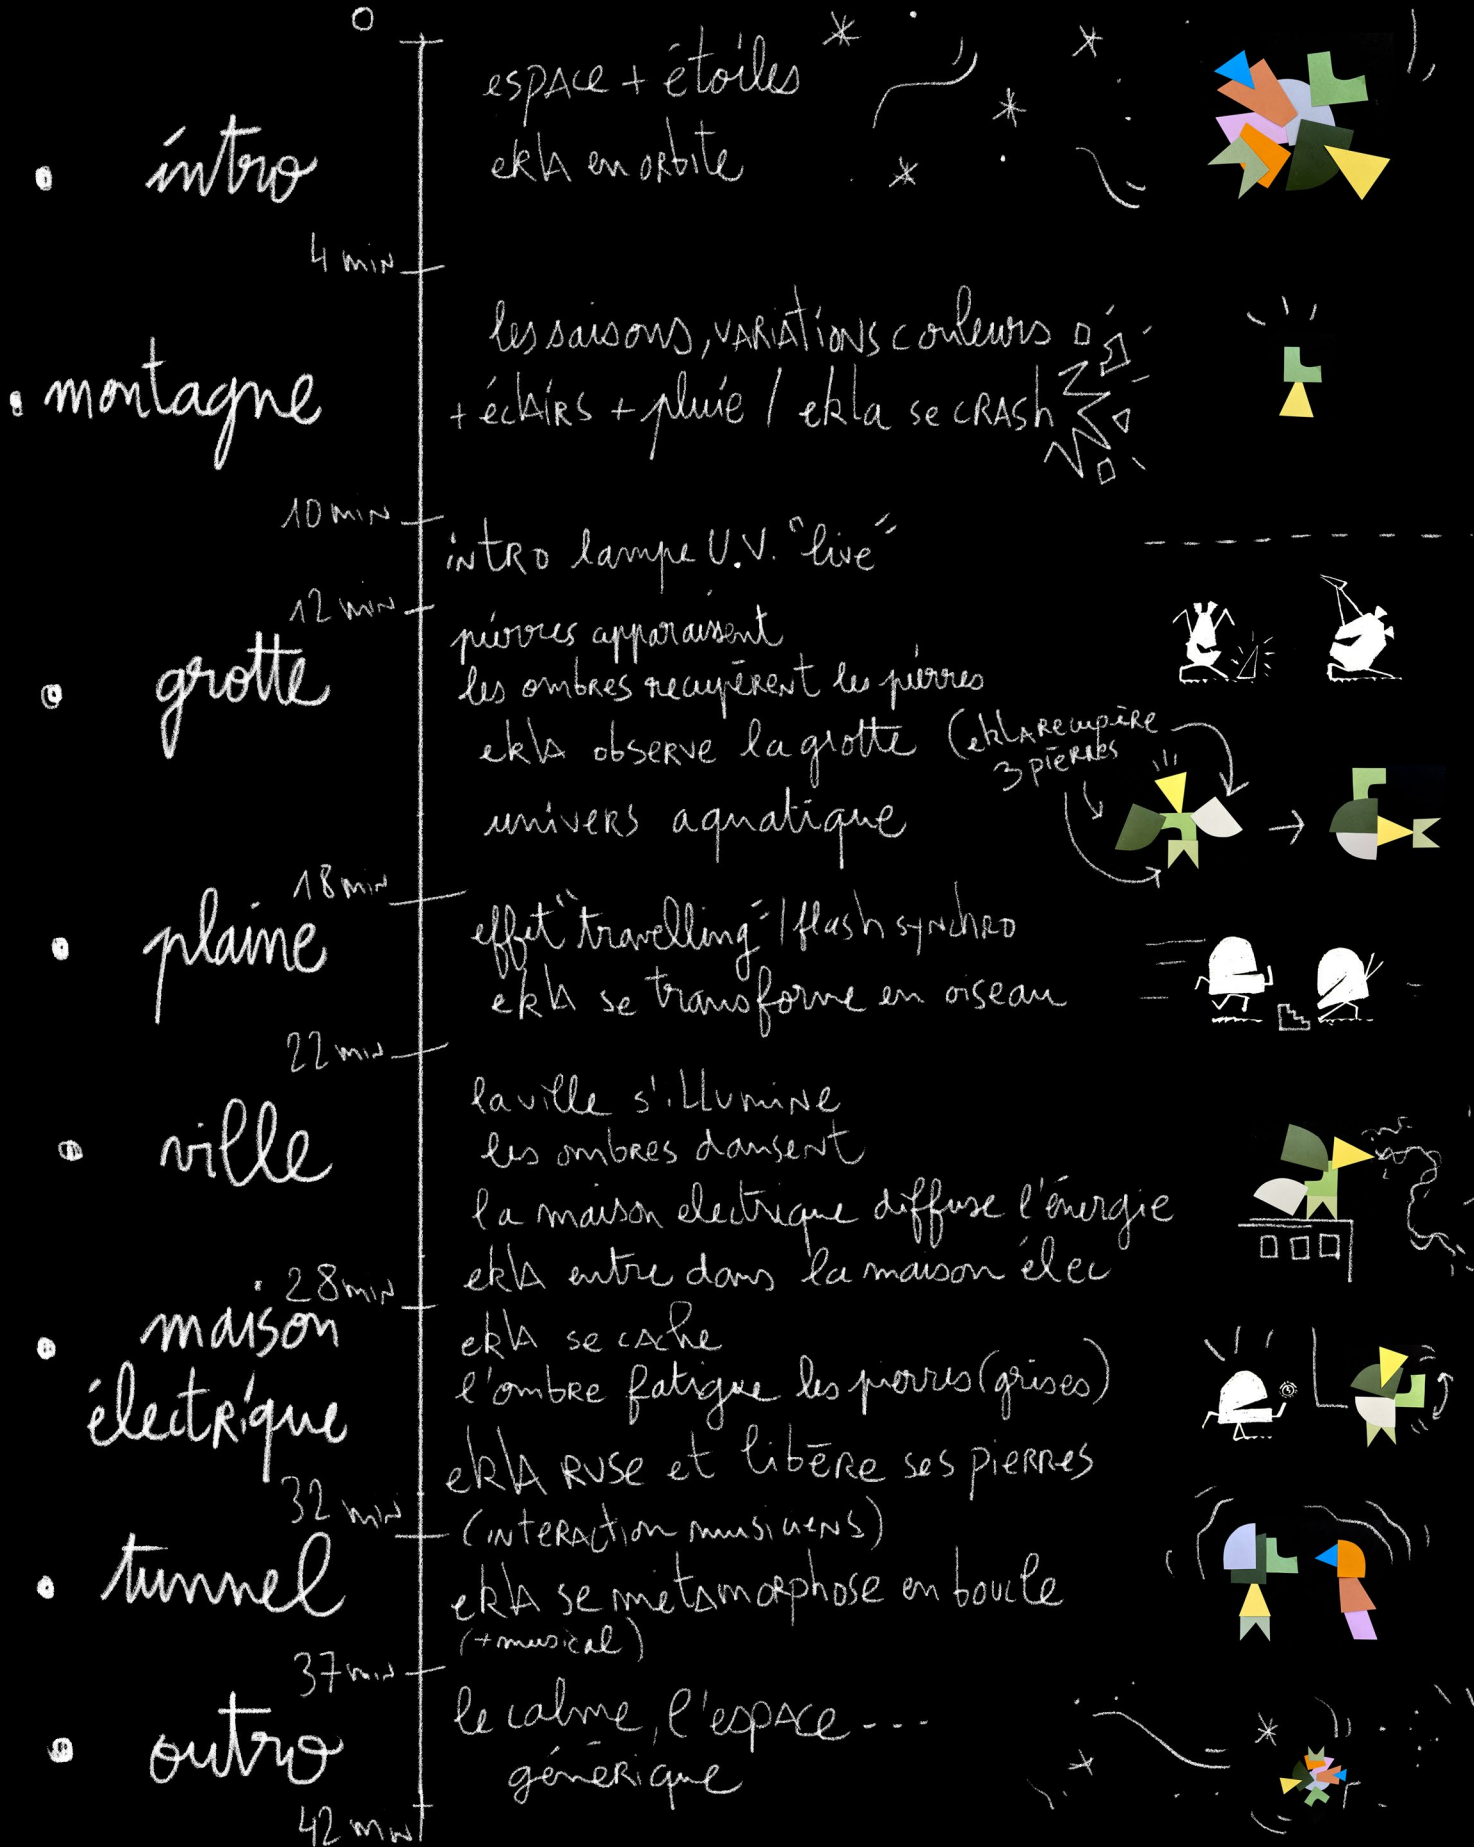 0
intro
espace + étoiles
ekla en orbite
4 min
montagne
les saisons, variations couleurs
+ éclairs + pluie / ekla se crash
10 min
intro lampe U.V. "live"
12 min
grotte
pierres apparaissent
les ombres recupèrent les pierres
ekla observe la grotte
(ekla recupère
3 pierres
univers aquatique
18 min
plaine
effet "travelling" / flash synchro
ekla se transforme en oiseau
22 min
ville
la ville s'illumine
les ombres dansent
la maison electrique diffuse l'énergie
ekla entre dans la maison élec
28 min
maison
électrique
ekla se cache
l'ombre fatigue les pierres (grises)
ekla ruse et libère ses pierres
32 min
(interaction musiciens)
tunnel
ekla se métamorphose en boucle
(+ musical)
37 min
outro
le calme, l'espace ---
générique
42 min